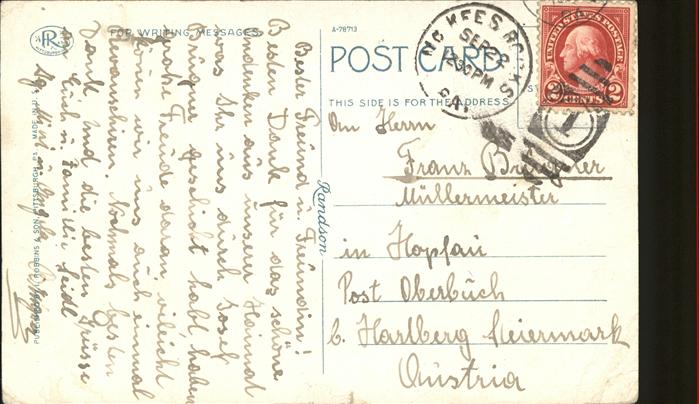 FOR WRITING MESSAGES
A-78713
POST CARD
THIS SIDE IS FOR THE ADDRESS
MC KEES ROCKS
SEP 2
30 PM
PA.
UNITED STATES POSTAGE
2 CENTS 2
1
Bester Freund u. Freundin!
Besten Dank für das schöne
Andenken aus unserer Heimat
was Ihr uns durch Josef
geschickt habt haben
Freude daran vieleicht
können wir uns auch einmal
Nochmals besten
Dank und die besten Grüsse
Euch u. Familie Seidl
Randson
An Herrn
Franz
Müllermeister
in Hopfau
Post Oberbuch
b. Hartberg Steiermark
Austria